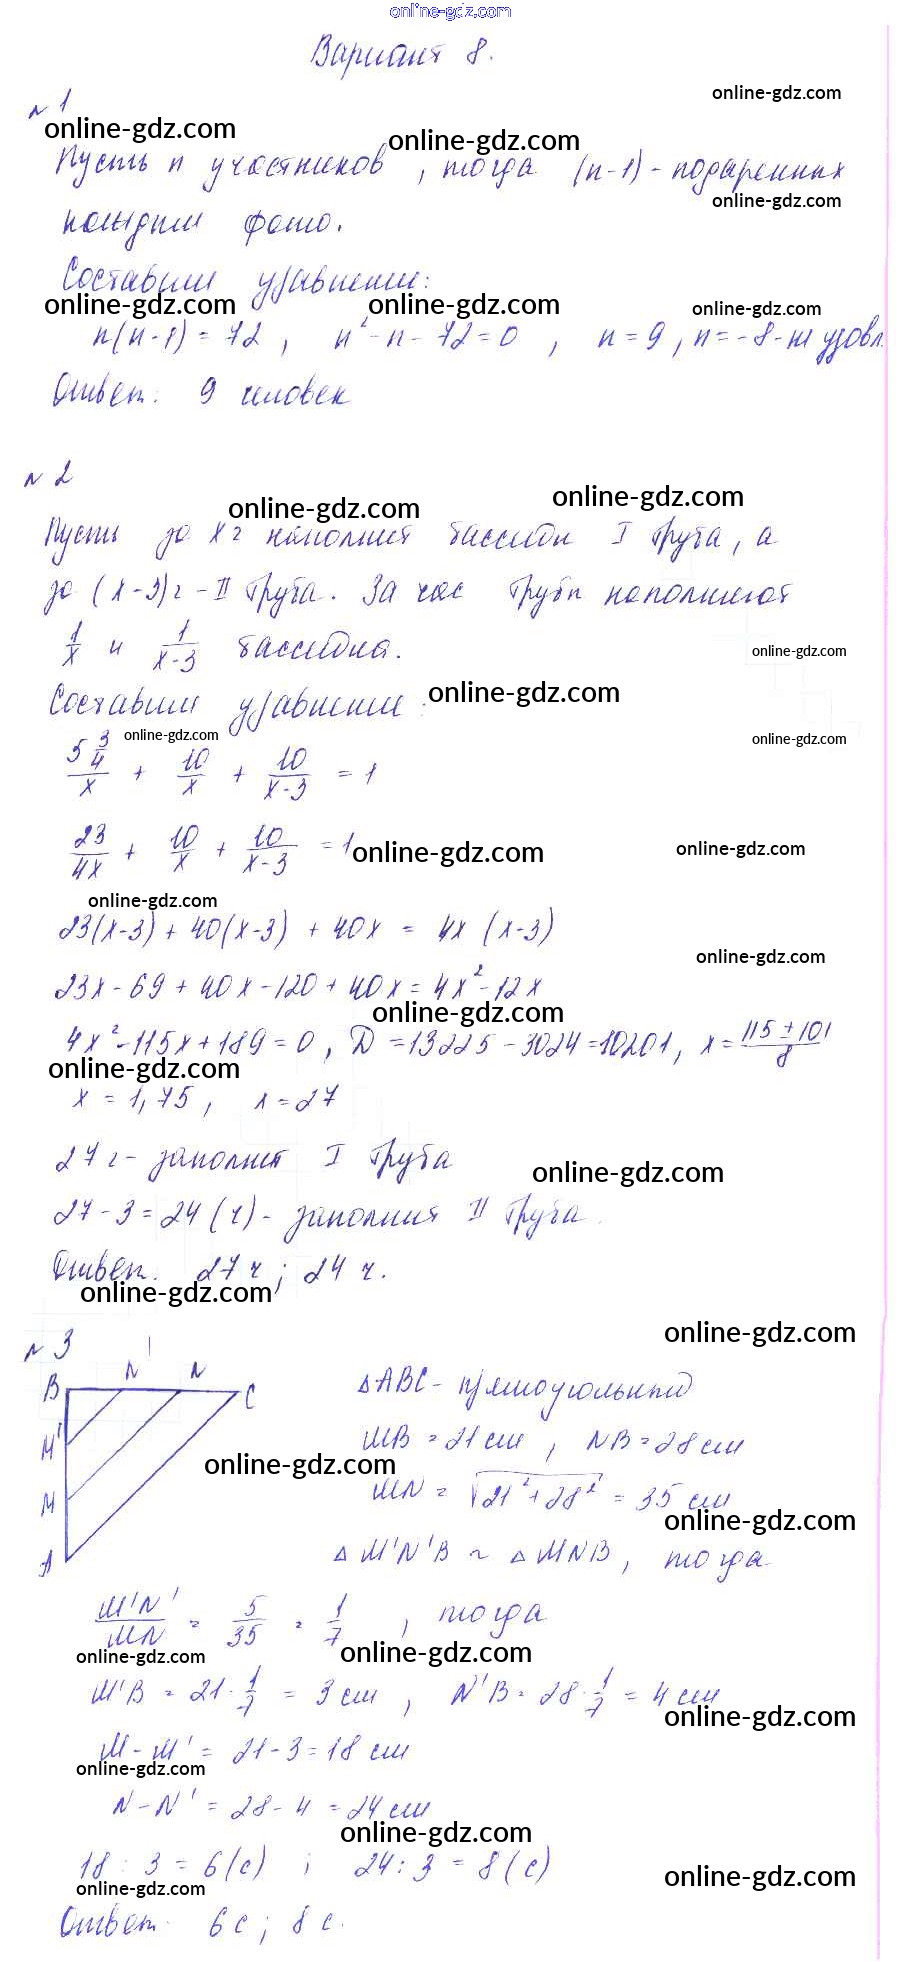 online-gdz.com
Вариант 8.
online-gdz.com
№ 1
online-gdz.com online-gdz.com
Пусть n участников, тогда (n-1) - подаренных
online-gdz.com
каждым фото.
Составим уравнение:
online-gdz.com online-gdz.com online-gdz.com
n(n-1) = 72, n² - n - 72 = 0, n = 9, n = -8 - не удовл.
Ответ: 9 человек
№ 2
online-gdz.com online-gdz.com
Пусть за x ч наполнит бассейн I труба, а
за (x-3) ч - II труба. За час трубы наполняют
1/x и 1/(x-3) бассейна.
online-gdz.com
Составим уравнение:
online-gdz.com
online-gdz.com online-gdz.com
5 3/4 / x + 10/x + 10/(x-3) = 1
23/4x + 10/x + 10/(x-3) = 1
online-gdz.com online-gdz.com
online-gdz.com
23(x-3) + 40(x-3) + 40x = 4x(x-3)
online-gdz.com
23x - 69 + 40x - 120 + 40x = 4x² - 12x
online-gdz.com
4x² - 115x + 189 = 0, D = 13225 - 3024 = 10201, x = (115 ± 101)/8
online-gdz.com
x = 1,75, x = 27
27 ч - заполнит I труба
online-gdz.com
27 - 3 = 24 (ч) - заполнит II труба.
Ответ: 27 ч; 24 ч.
online-gdz.com
online-gdz.com
№ 3
B N' N C
M'
M
A
△ABC - прямоугольный
MB = 21 см, NB = 28 см
online-gdz.com
MN = √(21² + 28²) = 35 см
online-gdz.com
△M'N'B ~ △MNB, тогда
M'N'/MN = 5/35 = 1/7, тогда
online-gdz.com online-gdz.com
M'B = 21 · 1/7 = 3 см, N'B = 28 · 1/7 = 4 см
online-gdz.com
M - M' = 21 - 3 = 18 см
online-gdz.com
N - N' = 28 - 4 = 24 см
online-gdz.com
18 : 3 = 6 (с) ; 24 : 3 = 8 (с)
online-gdz.com online-gdz.com
Ответ: 6 с; 8 с.